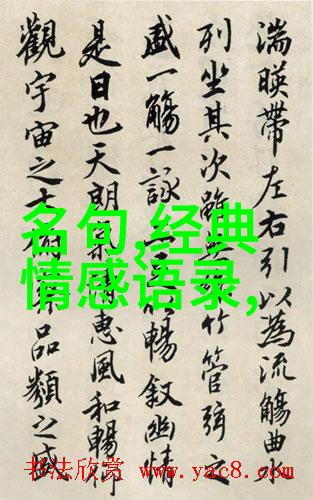 湍暎帶左右引以為流觴曲
列坐其次雖無竹管弦之
盛一觴一詠暢敘幽情
是日也天朗惠風和暢
觀宇宙之大品類之盛
名句,经典
情感语录,
书法欣赏 www.yac8.com